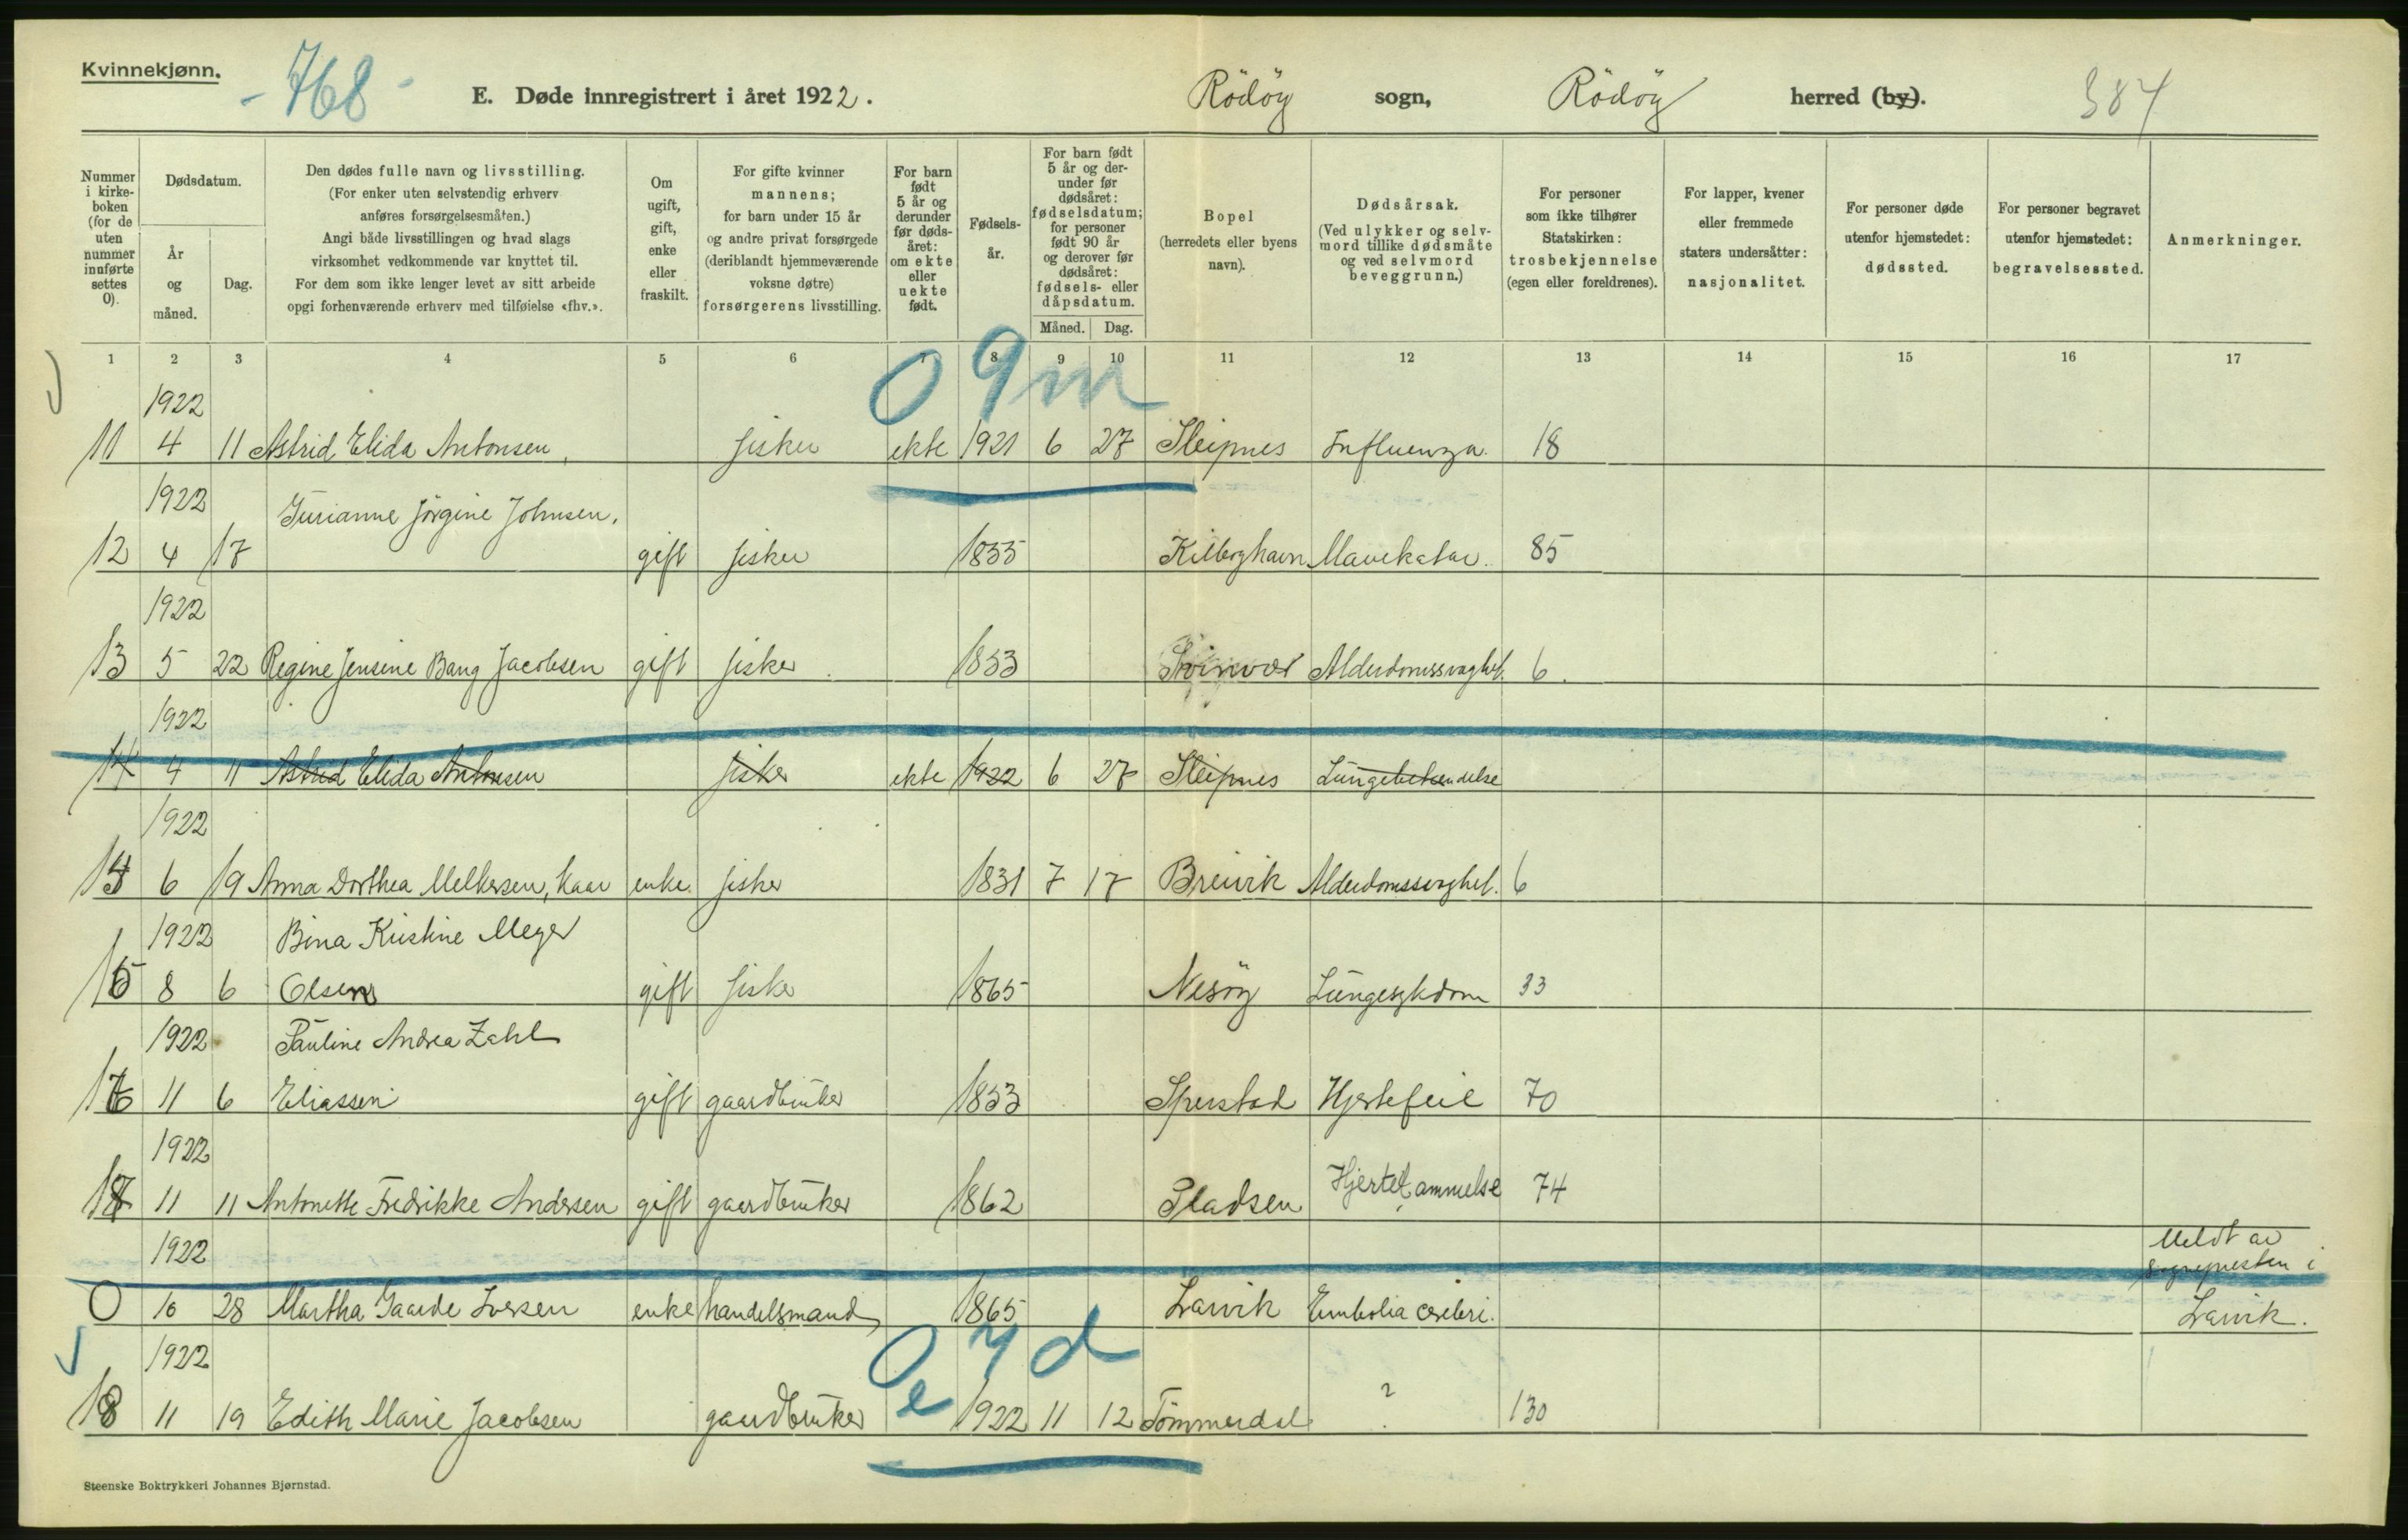 Kvinnekjønn.
- 768 -
E. Døde innregistrert i året 1922.
Rödöy sogn, Rödöy herred (by).
384
Nummer i kirke-boken (for de uten nummer innførte settes 0).
Dødsdatum.
År og måned.
Dag.
Den dødes fulle navn og livsstilling.
(For enker uten selvstendig erhverv
anføres forsørgelsesmåten.)
Angi både livsstillingen og hvad slags
virksomhet vedkommende var knyttet til.
For dem som ikke lenger levet av sitt arbeide
opgi forhenværende erhverv med tilføielse «fhv.».
Om ugift, gift, enke eller fraskilt.
For gifte kvinner
mannens;
for barn under 15 år
og andre privat forsørgede
(deriblandt hjemmeværende
voksne døtre)
forsørgerens livsstilling.
For barn født 5 år og derunder før døds-året: om ekte eller uekte født.
Fødsels-år.
For barn født 5 år og der-under før dødsåret: fødselsdatum; for personer født 90 år og derover før dødsåret: fødsels- eller dåpsdatum.
Måned. Dag.
Bopel
(herredets eller byens
navn).
Dødsårsak.
(Ved ulykker og selv-
mord tillike dødsmåte
og ved selvmord
beveggrunn.)
For personer
som ikke tilhører
Statskirken:
trosbekjennelse
(egen eller foreldrenes).
For lapper, kvener
eller fremmede
staters undersåtter:
nasjonalitet.
For personer døde
utenfor hjemstedet:
dødssted.
For personer begravet
utenfor hjemstedet:
begravelsessted.
Anmerkninger.
1 2 3 4 5 6 7 8 9 10 11 12 13 14 15 16 17
0 9 m
1922
11 4 11 Astrid Elida Antonsen, fisker ekte 1921 6 27 Sleipnes Influenza. 18
1922
Jörgine Johnsen.
12 4 17 gift fisker 1855 Kilboghavn Mavekatar. 85
1922
13 5 22 Regine Jensine Bang Jacobsen gift fisker 1853 Alderdomssvaghet. 6.
1922
14 4 11 Astrid Elida Antonsen fisker ekte 1922 6 27 Sleipnes Lungebetændelse
1922
14 6 19 Anna Dorthea Melkersen, kaar enke fisker 1831 7 17 Breivik Alderdomssvaghet. 6
1922 Bina Kristine Meyer
15 8 6 Olsen gift fisker 1865 Nesöy Lungesykdom 33
1922 Pauline Andrea Zahl
16 11 6 Eliassen gift gaardbruker 1853 Sperstad Hjertefeil 70
1922
17 11 11 Antonette Fredrikke Andersen gift gaardbruker 1862 Pladsen 74
1922 Meldt av
sognepresten i
0 10 28 Martha Gaarde Iversen enke handelsmand 1865 Larvik Embolia cerebri. Larvik.
1922 0 7 d
18 11 19 Edith Marie Jacobsen gaardbruker e 1922 11 12 Tömmerdal ? 130
Steenske Boktrykkeri Johannes Bjørnstad.